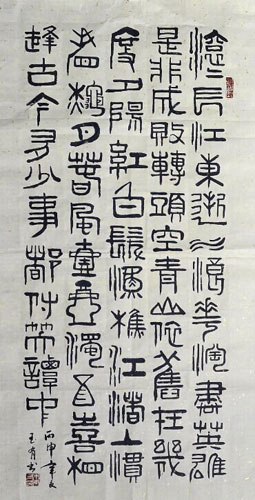 滾〻長江東逝水浪花淘盡英雄
是非成敗轉頭空青山依舊在幾
度夕陽紅白髮漁樵江渚上慣
看秋月春風壹壺濁酒喜相
逢古今多少事都付笑談中
丙申年
王書